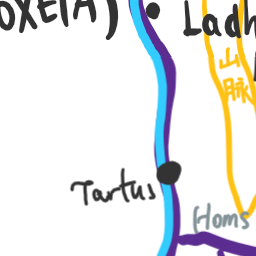 OXEIA)
Ladh
山
脉
Tartus
Homs